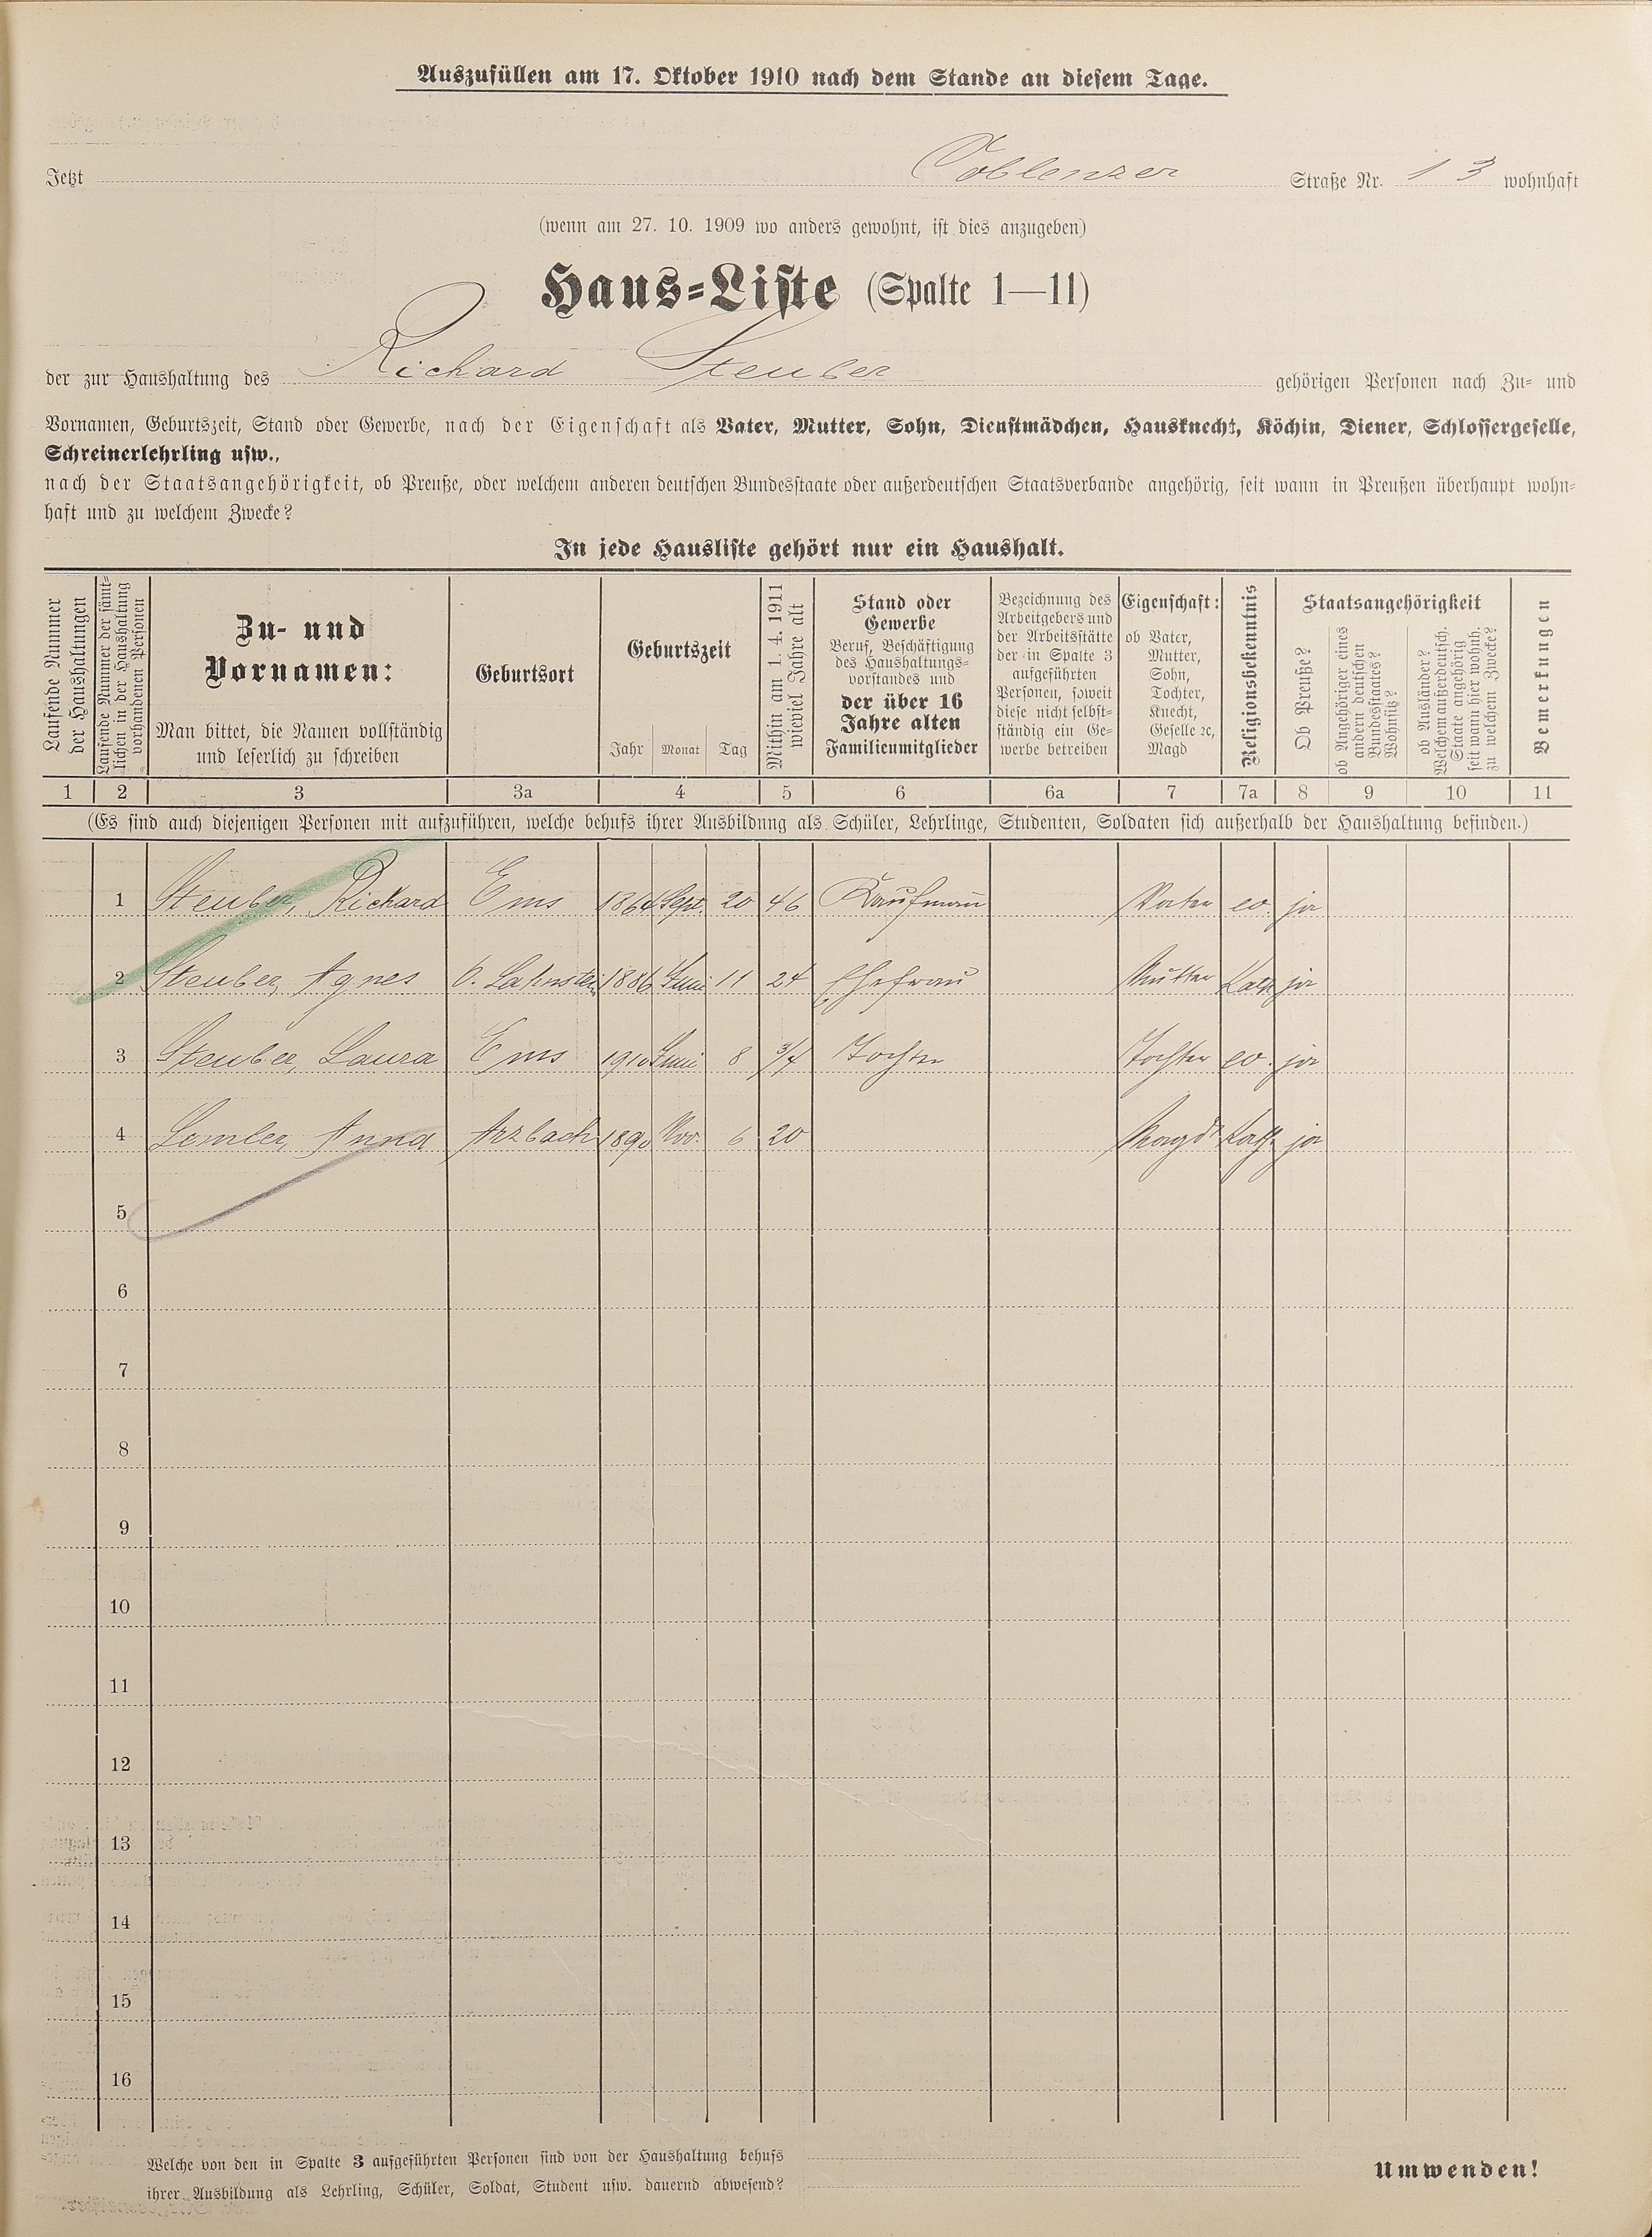 Auszufüllen am 17. Oktober 1910 nach dem Stande an diesem Tage.
Jetzt Coblenzer Straße Nr. 13 wohnhaft
(wenn am 27. 10. 1909 wo anders gewohnt, ist dies anzugeben)
Haus-Liste (Spalte 1—11)
der zur Haushaltung des Richard Steuber gehörigen Personen nach Zu- und
Vornamen, Geburtszeit, Stand oder Gewerbe, nach der Eigenschaft als Vater, Mutter, Sohn, Dienstmädchen, Hausknecht, Köchin, Diener, Schlossergeselle,
Schreinerlehrling usw.,
nach der Staatsangehörigkeit, ob Preuße, oder welchem anderen deutschen Bundesstaate oder außerdeutschen Staatsverbande angehörig, seit wann in Preußen überhaupt wohn-
haft und zu welchem Zwecke?
In jede Hausliste gehört nur ein Haushalt.
Laufende Nummer
der Haushaltungen
Laufende Nummer der sämt-
lichen in der Haushaltung
vorhandenen Personen
Zu- und
Vornamen:
Man bittet, die Namen vollständig
und leserlich zu schreiben
Geburtsort
Geburtszeit
Jahr Monat Tag
Mithin am 1. 4. 1911
wieviel Jahre alt
Stand oder
Gewerbe
Beruf, Beschäftigung
des Haushaltungs-
vorstandes und
der über 16
Jahre alten
Familienmitglieder
Bezeichnung des
Arbeitgebers und
der Arbeitsstätte
der in Spalte 3
aufgeführten
Personen, soweit
diese nicht selbst-
ständig ein Ge-
werbe betreiben
Eigenschaft:
ob Vater,
Mutter,
Sohn,
Tochter,
Knecht,
Geselle ec,
Magd
Religionsbekenntnis
Staatsangehörigkeit
Ob Preuße?
ob Angehöriger eines
andern deutschen
Bundesstaates?
Wohnsitz?
ob Ausländer?
Welchem außerdeutsch.
Staate angehörig
seit wann hier wohnh.
zu welchem Zwecke?
Bemerkungen
1 2 3 3a 4 5 6 6a 7 7a 8 9 10 11
(Es sind auch diejenigen Personen mit aufzuführen, welche behufs ihrer Ausbildung als Schüler, Lehrlinge, Studenten, Soldaten sich außerhalb der Haushaltung befinden.)
1 Steuber, Richard Ems 1864 Sept. 20 46 Kaufmann Vater ev. ja
2 Steuber, Agnes O. Lahnstein 1886 Juni 11 24 Ehefrau Mutter Kath ja
3 Steuber, Laura Ems 1910 Juni 8 3/4 Tochter Tochter ev. ja
4 Semler, Anna Arzbach 1890 Nov. 6 20 Magd Kath. ja
5
6
7
8
9
10
11
12
13
14
15
16
Welche von den in Spalte 3 aufgeführten Personen sind von der Haushaltung behufs
ihrer Ausbildung als Lehrling, Schüler, Soldat, Student usw. dauernd abwesend?
Umwenden!